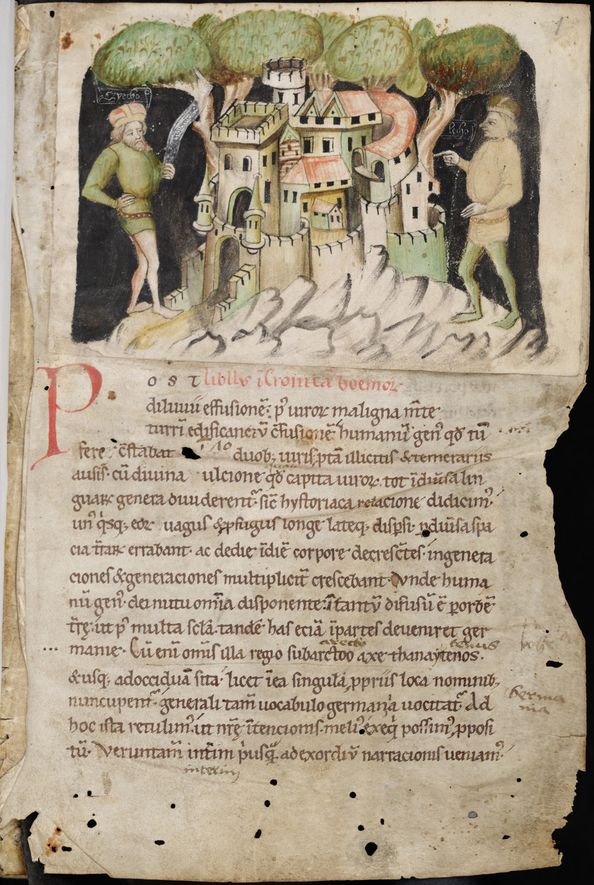 1
Czecho
Lecho
Post lib[er] i[n] Cronica boemor[um]
diluuii effusione[m] p[ost] uiror[um] maligna m[en]te
turri[m] edificanciu[m] c[on]fusione[m] humanu[m] gen[us] q[uo]d tu[m]
fere c[on]stabat duob[us] uiris p[ro] ta[m] illicitis & temerariis
ausis cu[m] diuina ulcione q[uo]d capita uiror[um] tot i[n] diu[er]sa lin
guar[um] genera diuiderent[ur] sic[ut] hystoriaca relacione didicim[us]
un[us]q[ui]sq[ue] eor[um] uagus & p[ro]fugus longe lateq[ue] disp[er]si p[er] diu[er]sa spa
cia t[er]rar[um] errabant ac de die i[n] die[m] corpore decresce[n]tes in genera
ciones & generaciones multiplicit[er] crescebant Vnde huma
nu[m] gen[us] dei nutu om[n]ia disponente i[n] tantu[m] difusu[m] e[st] p[er] orbe[m]
t[er]re ut p[ost] multa s[e]c[u]la tande[m] has ecia[m] i[n] partes deueniret ger
manie Cu[m] eni[m] om[n]is illa regio sub arctoo axe thanaytenos
& usq[ue] ad occiduu[m] sita licet i[n] ea singula p[ro]priis loca nominib[us]
nuncupent[ur] generali tam[en] uocabulo germania uocitat[ur] Ad
hoc ista retulim[us] ut n[ost]re i[n]tencionis meli[us] exeq[ui] possim[us] p[ro]posi
tu[m] Verumtam[en] int[er]im p[ri]usq[uam] ad exordiu[m] narracionis ueniam[us]
interim
Germa
nia